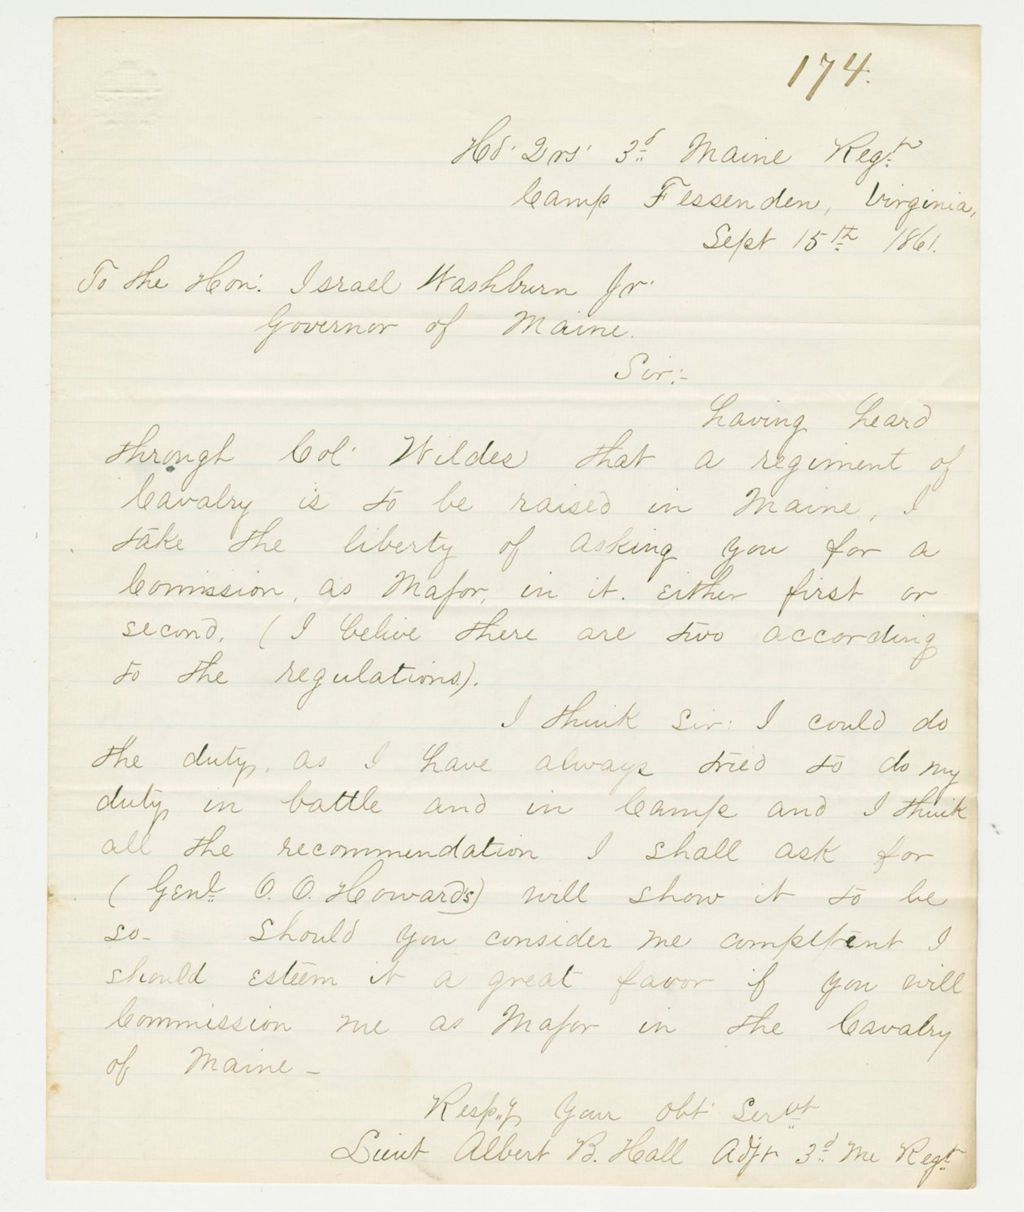 174.
Hd. Qrs. 3d Maine Regt
Camp Fessenden, Virginia,
Sept 15th 1861.
To the Hon. Israel Washburn Jr.
Governor of Maine.
Sir:-
Having heard
through Col. Wildes that a regiment of
Cavalry is to be raised in Maine, I
take the liberty of asking you for a
Commission, as Major, in it. either first or
second, (I belive there are two according
to the regulations).
I think Sir: I could do
the duty, as I have always tried to do my
duty in battle and in Camp and I think
all the recommendation I shall ask for
(Genl. O. O. Howards) will show it to be
so- Should you consider me competent I
should esteem it a great favor if you will
Commission me as Major in the Cavalry
of Maine-
Resp"y Your obt. Serv"t
Lieut Albert B. Hall Adjt 3d Me Regt